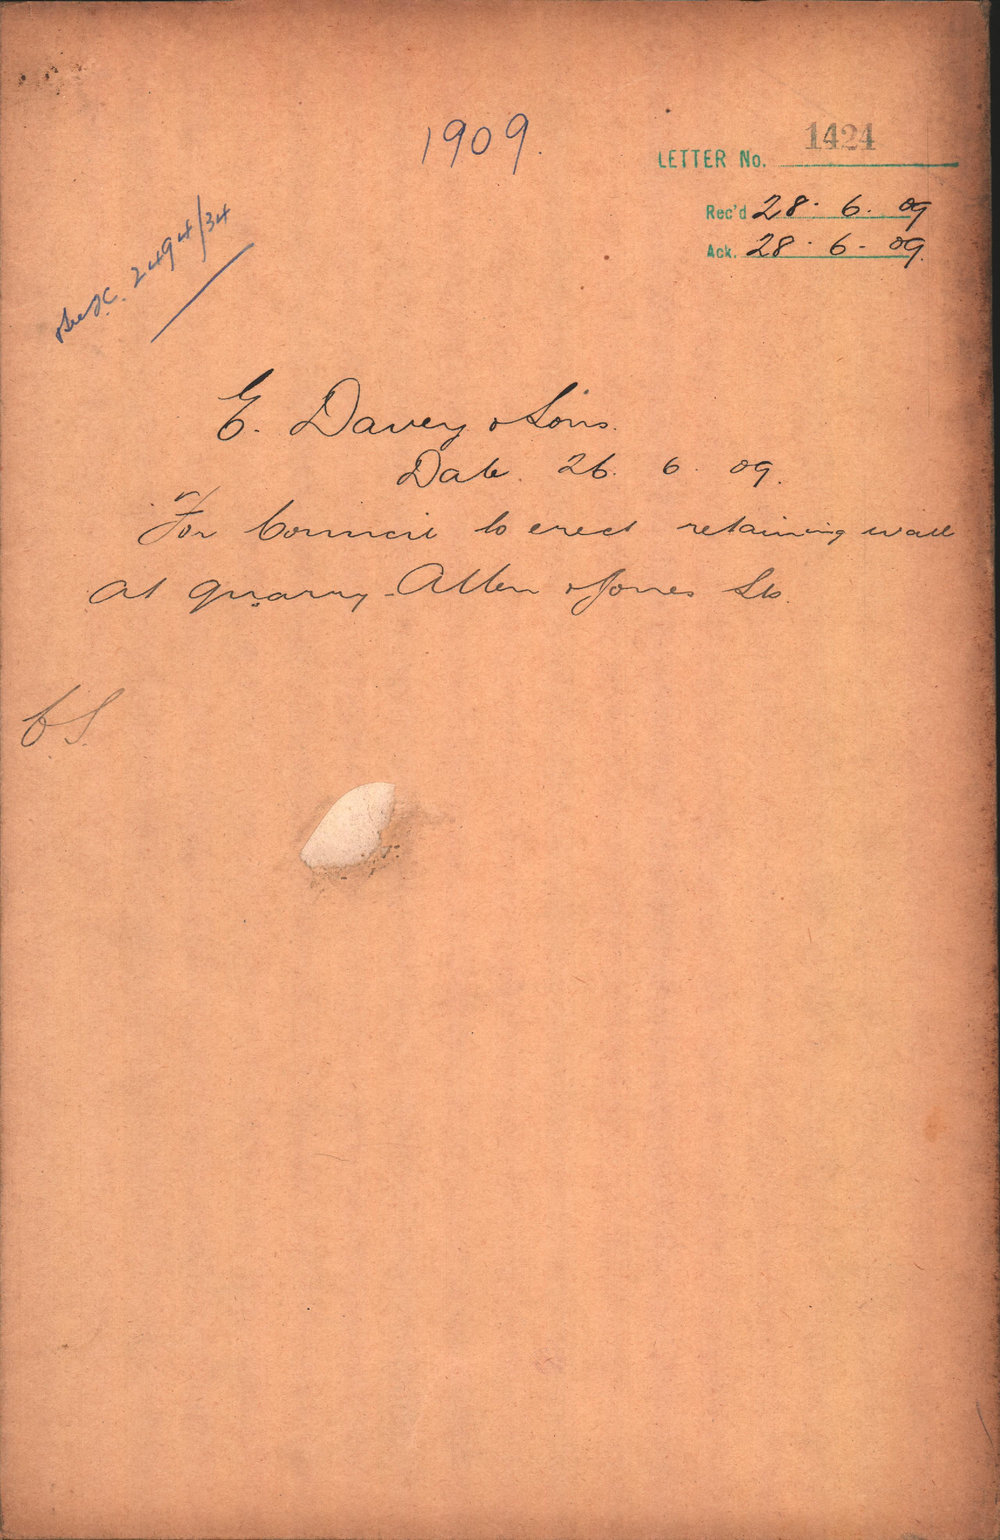 1909.
LETTER No. 1424
Rec'd 28. 6. 09
Ack. 28. 6. 09.
2494/34
E. Davey & Sons.
Date. 26. 6. 09.
For Council to erect retaining wall
at quarry - Allen & Jones Sts.
CS.